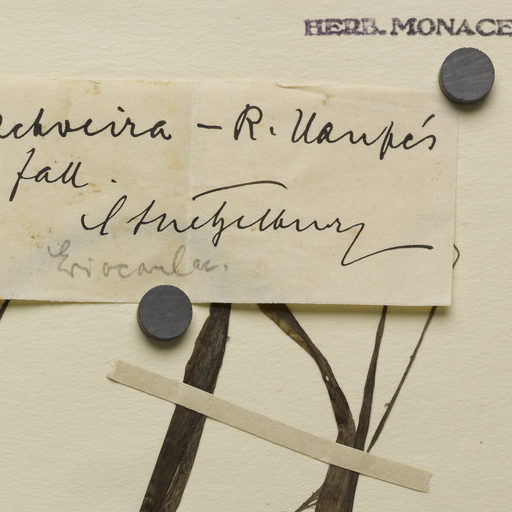 HERB. MONACE
choeira – R. Uaupés
fall.
Luetzelburg
Eriocaulac.